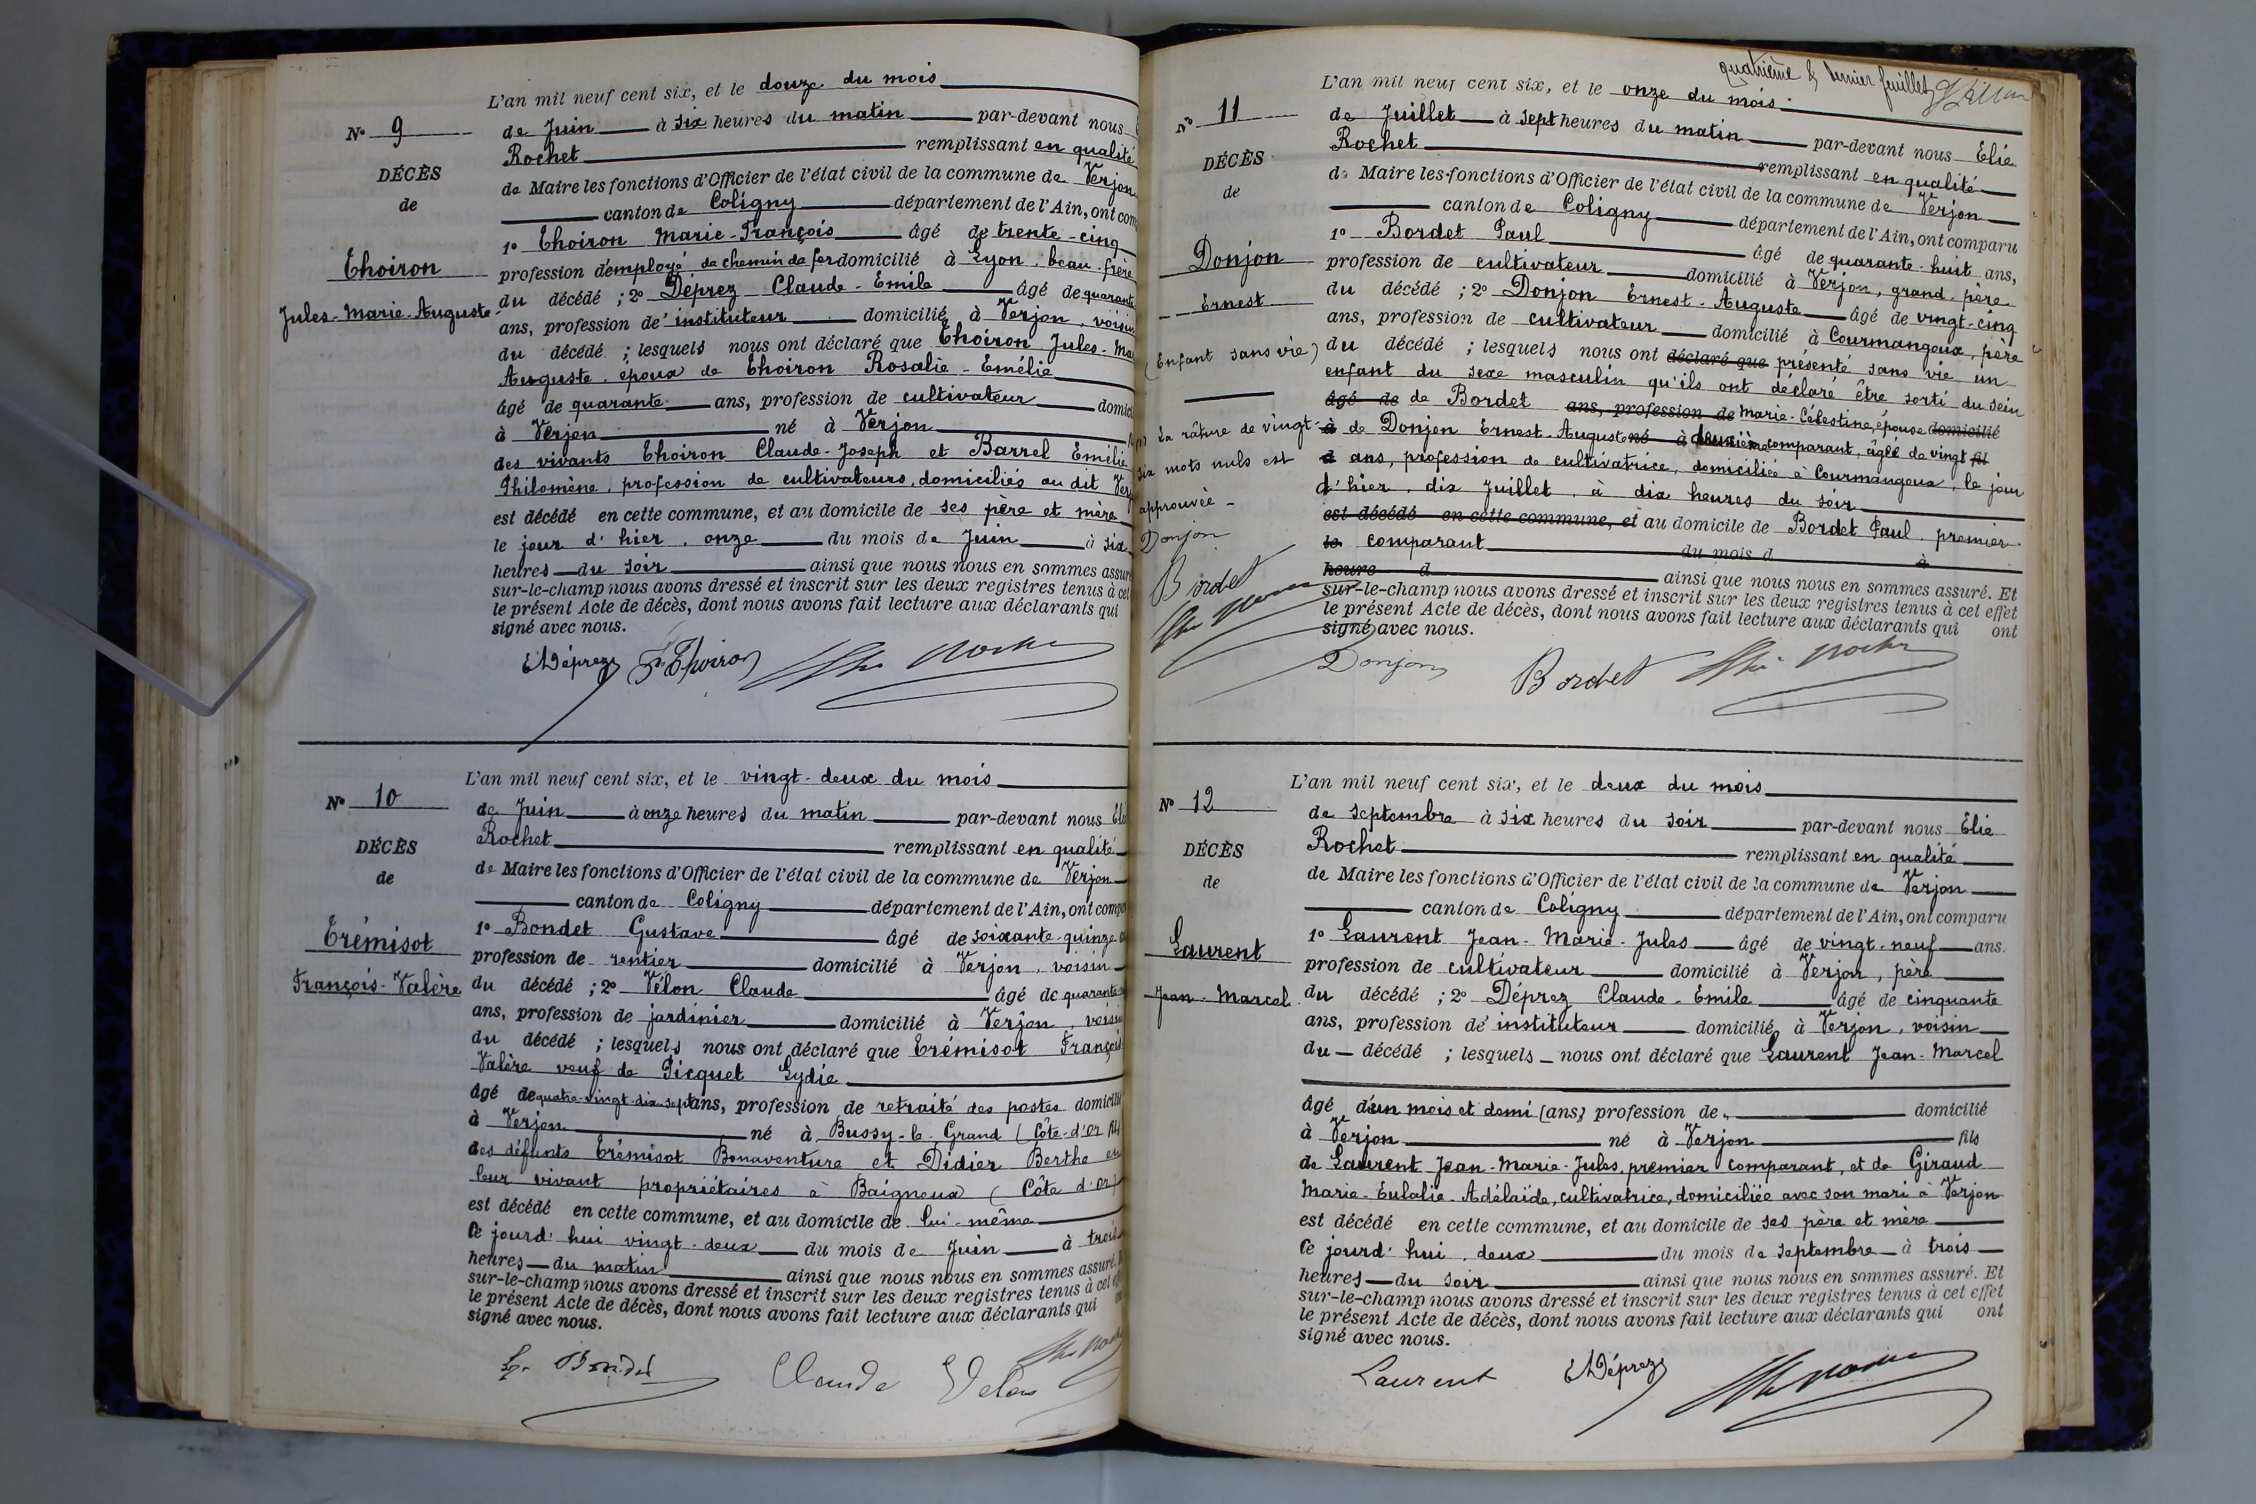 L'an mil neuf cent six, et le douze du mois
N° 9
de Juin à six heures du matin par-devant nous
Rochet remplissant en qualité
DÉCÈS
de Maire les fonctions d'Officier de l'état civil de la commune de Verjon
de
canton de Coligny département de l'Ain, ont com
1° Thoiron Marie-François âgé de trente-cinq
Thoiron
profession d'employé de chemin de fer domicilié à Lyon, beau-frère
Jules-Marie-Auguste
du décédé ; 2° Déprez Claude-Emile âgé de quarante
ans, profession de instituteur domicilié à Verjon, voisin
du décédé ; lesquels nous ont déclaré que Thoiron Jules-Ma
Auguste, époux de Thoiron Rosalie-Emélie
âgé de quarante ans, profession de cultivateur domici
à Verjon né à Verjon
des vivants Thoiron Claude-Joseph et Barrel Emélie
Philomène, profession de cultivateurs, domiciliés au dit Ver
est décédé en cette commune, et au domicile de ses père et mère
le jour d'hier, onze du mois de Juin à six
heures du soir ainsi que nous nous en sommes assuré
sur-le-champ nous avons dressé et inscrit sur les deux registres tenus à cet
le présent Acte de décès, dont nous avons fait lecture aux déclarants qui
signé avec nous.
EDéprez Thoiron Elie Rochet
L'an mil neuf cent six, et le vingt-deux du mois
N° 10
de Juin à onze heures du matin par-devant nous Eli
Rochet remplissant en qualité
DÉCÈS
de Maire les fonctions d'Officier de l'état civil de la commune de Verjon
de
canton de Coligny département de l'Ain, ont compa
1° Bondet Gustave âgé de soixante-quinze
Trémisot
profession de rentier domicilié à Verjon, voisin
François-Valère
du décédé ; 2° Vélon Claude âgé de quarante
ans, profession de jardinier domicilié à Verjon, voisin
du décédé ; lesquels nous ont déclaré que Trémisot François
Valère veuf de Picquet Lydie
âgé de quatre-vingt-dix-sept ans, profession de retraité des postes domicilié
à Verjon né à Bussy-le-Grand (Côte-d'or fils
des défunts Trémisot Bonaventure et Didier Berthe en
leur vivant propriétaires à Baigneux (Côte d'or)
est décédé en cette commune, et au domicile de lui-même
ce jourd'hui vingt-deux du mois de Juin à trois
heures du matin ainsi que nous nous en sommes assuré.
sur-le-champ nous avons dressé et inscrit sur les deux registres tenus à cet
le présent Acte de décès, dont nous avons fait lecture aux déclarants qui
signé avec nous.
G. Bondet Claude Velon Elie Rochet
quatrième & dernier feuillet
L'an mil neuf cent six, et le onze du mois
N° 11
de Juillet à sept heures du matin par-devant nous Elie
Rochet remplissant en qualité
DÉCÈS
de Maire les fonctions d'Officier de l'état civil de la commune de Verjon
de
canton de Coligny département de l'Ain, ont comparu
1° Bordet Paul âgé de quarante-huit ans,
Donjon
profession de cultivateur domicilié à Verjon, grand-père
Ernest
du décédé ; 2° Donjon Ernest-Auguste âgé de vingt-cinq
ans, profession de cultivateur domicilié à Courmangoux, père
(Enfant sans vie)
du décédé ; lesquels nous ont déclaré que présenté sans vie un
enfant du sexe masculin qu'ils ont déclaré être sorti du sein
âgé de de Bordet ans, profession de Marie-Célestine, épouse domicilié
La râture de vingt-
six mots nuls est
approuvée -
Donjon
Bordet
Elie Rochet
à de Donjon Ernest-Auguste né à deuxième comparant, âgée de vingt fil
d ans, profession de cultivatrice, domiciliée à Courmangoux, le jour
d'hier, dix Juillet, à dix heures du soir
est décédé en cette commune, et au domicile de Bordet Paul, premier
le comparant du mois d à
heure d ainsi que nous nous en sommes assuré. Et
sur-le-champ nous avons dressé et inscrit sur les deux registres tenus à cet effet
le présent Acte de décès, dont nous avons fait lecture aux déclarants qui ont
signé avec nous.
Donjon Bordet Elie Rochet
L'an mil neuf cent six, et le deux du mois
N° 12
de septembre à six heures du soir par-devant nous Elie
Rochet remplissant en qualité
DÉCÈS
de Maire les fonctions d'Officier de l'état civil de la commune de Verjon
de
canton de Coligny département de l'Ain, ont comparu
1° Laurent Jean-Marie-Jules âgé de vingt-neuf ans.
Laurent
profession de cultivateur domicilié à Verjon, père
Jean-Marcel
du décédé ; 2° Déprez Claude-Emile âgé de cinquante
ans, profession de instituteur domicilié à Verjon, voisin
du décédé ; lesquels nous ont déclaré que Laurent Jean-Marcel
âgé d'un mois et demi (ans) profession de domicilié
à Verjon né à Verjon fils
de Laurent Jean-Marie-Jules, premier comparant, et de Giraud
Marie-Eulalie-Adélaïde, cultivatrice, domiciliée avec son mari à Verjon
est décédé en cette commune, et au domicile de ses père et mère
ce jourd'hui, deux du mois de septembre à trois
heures du soir ainsi que nous nous en sommes assuré. Et
sur-le-champ nous avons dressé et inscrit sur les deux registres tenus à cet effet
le présent Acte de décès, dont nous avons fait lecture aux déclarants qui ont
signé avec nous.
Laurent EDéprez Elie Rochet